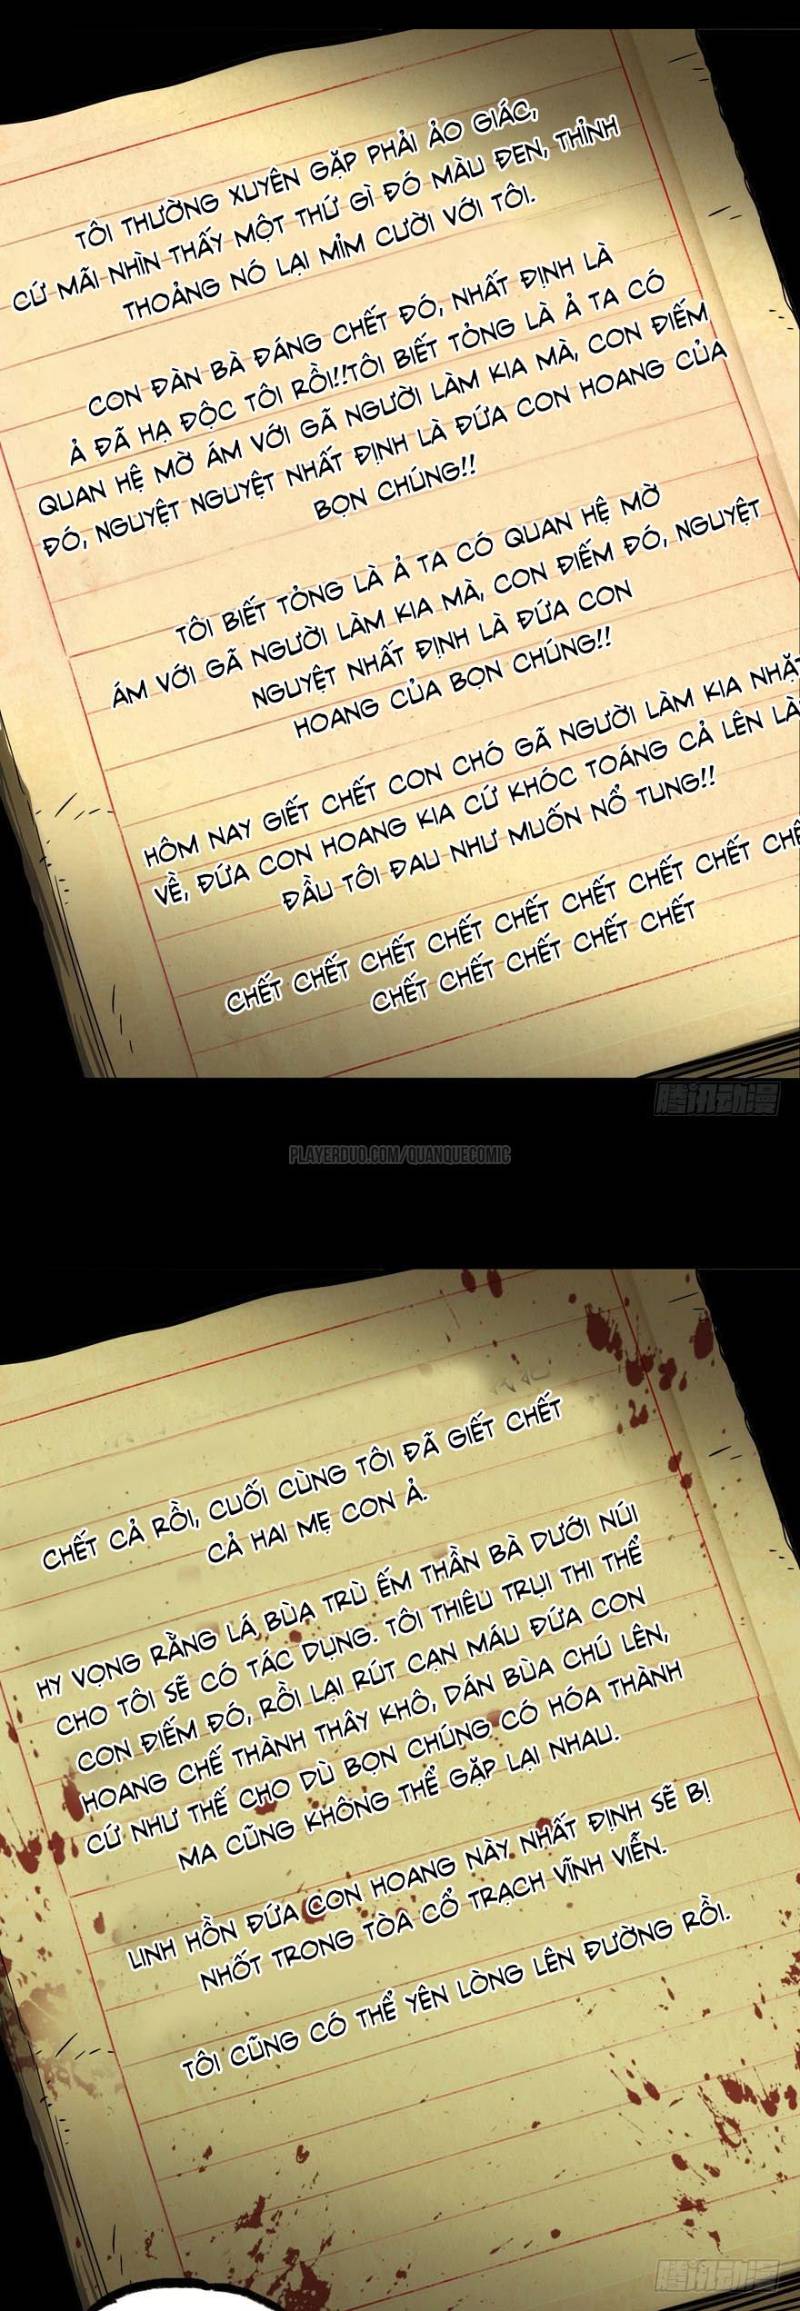 TÔI THƯỜNG XUYÊN GẶP PHẢI ẢO GIÁC,
CỨ MÃI NHÌN THẤY MỘT THỨ GÌ ĐÓ MÀU ĐEN, THỈNH
THOẢNG NÓ LẠI MỈM CƯỜI VỚI TÔI.
CON ĐÀN BÀ ĐÁNG CHẾT ĐÓ, NHẤT ĐỊNH LÀ
Ả ĐÃ HẠ ĐỘC TÔI RỒI!!TÔI BIẾT TỎNG LÀ Ả TA CÓ
QUAN HỆ MỜ ÁM VỚI GÃ NGƯỜI LÀM KIA MÀ, CON ĐIẾM
ĐÓ, NGUYỆT NGUYỆT NHẤT ĐỊNH LÀ ĐỨA CON HOANG CỦA
BỌN CHÚNG!!
TÔI BIẾT TỎNG LÀ Ả TA CÓ QUAN HỆ MỜ
ÁM VỚI GÃ NGƯỜI LÀM KIA MÀ, CON ĐIẾM ĐÓ, NGUYỆT
NGUYỆT NHẤT ĐỊNH LÀ ĐỨA CON
HOANG CỦA BỌN CHÚNG!!
HÔM NAY GIẾT CHẾT CON CHÓ GÃ NGƯỜI LÀM KIA NHẶT
VỀ, ĐỨA CON HOANG KIA CỨ KHÓC TOÁNG CẢ LÊN LÀ
ĐẦU TÔI ĐAU NHƯ MUỐN NỔ TUNG!!
CHẾT CHẾT CHẾT CHẾT CHẾT CHẾT CHẾT CHẾT CHẾ
CHẾT CHẾT CHẾT CHẾT CHẾT
腾讯动漫
PLAYERDUO.COM/QUANQUECOMIC
CHẾT CẢ RỒI, CUỐI CÙNG TÔI ĐÃ GIẾT CHẾT
CẢ HAI MẸ CON Ả.
HY VỌNG RẰNG LÁ BÙA TRÙ ẾM THẦN BÀ DƯỚI NÚI
CHO TÔI SẼ CÓ TÁC DỤNG. TÔI THIÊU TRỤI THI THỂ
CON ĐIẾM ĐÓ, RỒI LẠI RÚT CẠN MÁU ĐỨA CON
HOANG CHẾ THÀNH THÂY KHÔ, DÁN BÙA CHÚ LÊN,
CỨ NHƯ THẾ CHO DÙ BỌN CHÚNG CÓ HÓA THÀNH
MA CŨNG KHÔNG THỂ GẶP LẠI NHAU.
LINH HỒN ĐỨA CON HOANG NÀY NHẤT ĐỊNH SẼ BỊ
NHỐT TRONG TÒA CỔ TRẠCH VĨNH VIỄN.
TÔI CŨNG CÓ THỂ YÊN LÒNG LÊN ĐƯỜNG RỒI.
腾讯动漫